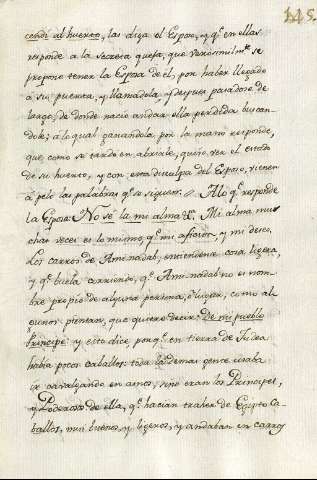 145
cendi al huerto, las diga el Esposo, y q.e en ellas
responde a la secreta quexa, que verosimilm.te se
propone tener la Esposa de él, por haber llegado
á su puerta, y llamadola, y despues pasadose de
largo, de donde nació andar ella perdida buscan
dole; a lo qual ganandola por la mano responde,
que como se tardó en abrirle, quiso ver el estado
de su huerto, y con esta disculpa del Esposo, vienen
á pelo las palabras q.e se siguen. A lo q.e responde
la Esposa: No sé la mi alma &. Mi alma mu
chas veces es lo mismo, q.e mi aficion, y mi deseo.
Los carros de Aminadab, entiendese cosa ligera,
y q.e buela corriendo, q.e Aminadab no es nom
bre propio de alguna persona, ó lugar, como al
gunos piensan, que quiere decir: De mi pueblo
Principe y esto dice, porq.e en tierra de Judea
había pocos caballos: toda la demas gente usaba
ir cavalgando en asnos, sino eran los Principes,
y Poderosos de ella, q.e hacían traher de Egipto ca
ballos, mui buenos, y ligeros, y andaban en carros